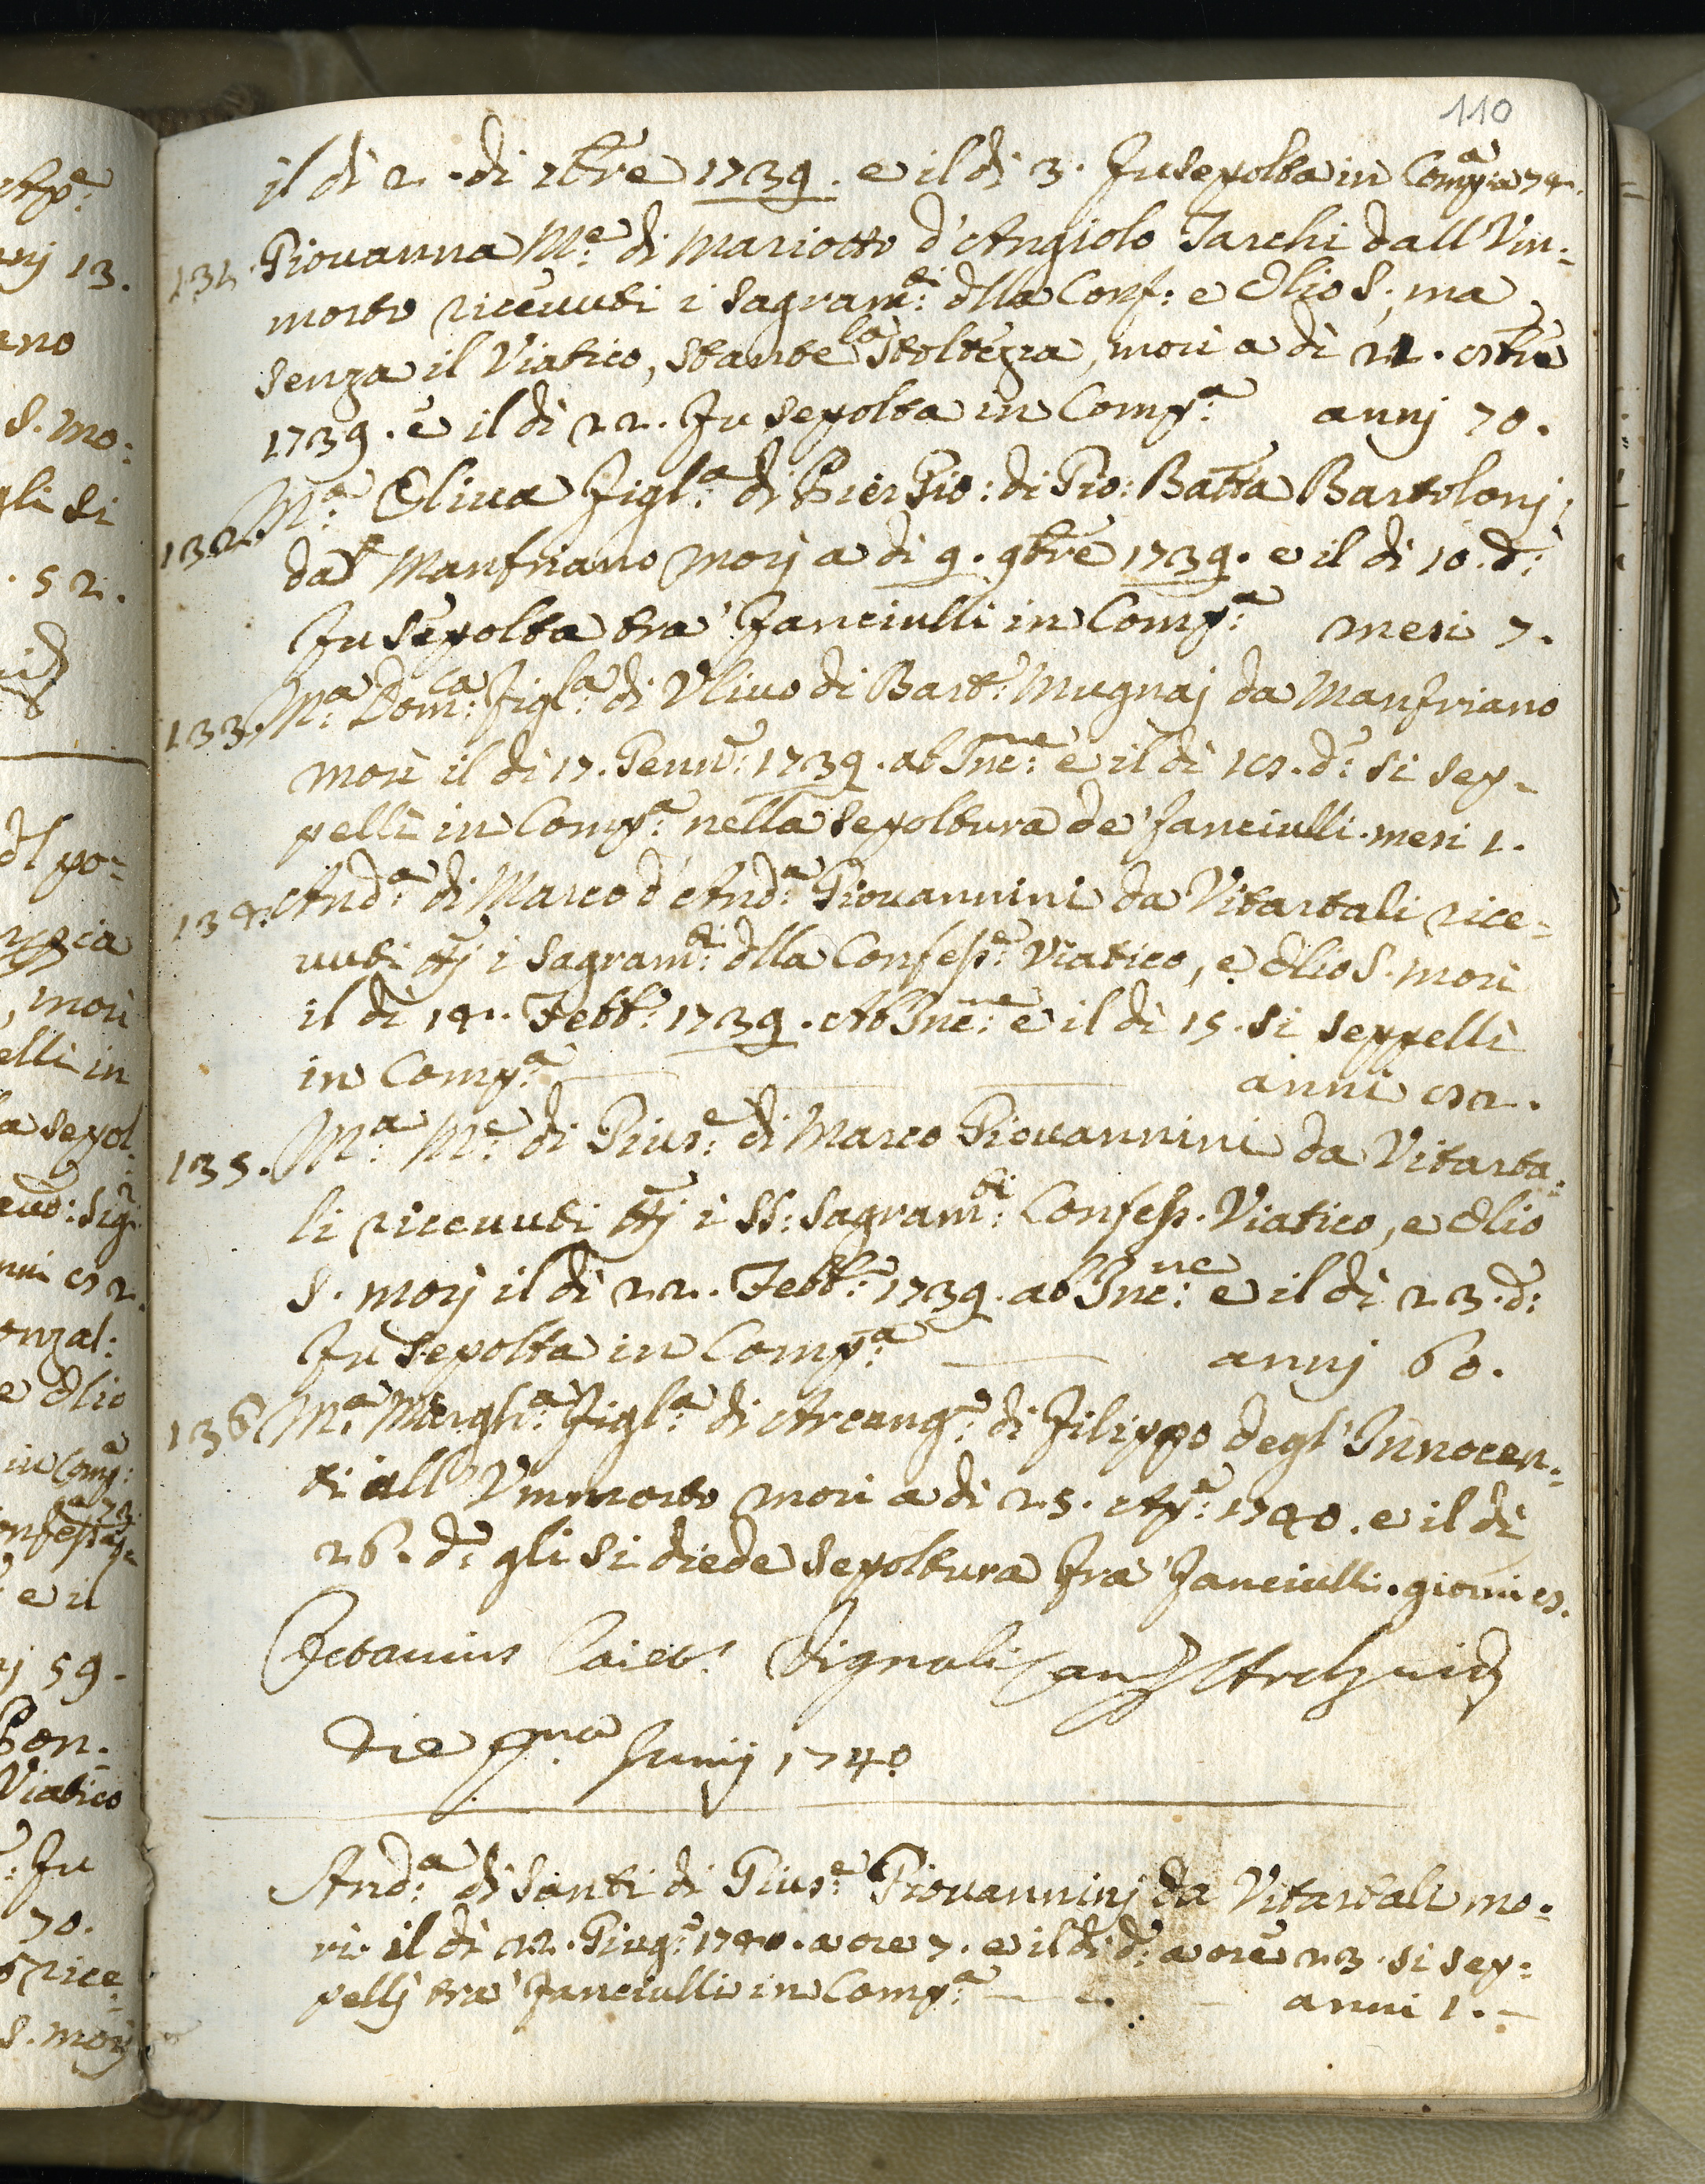 110
il dì 2. di 7bre 1739. e il dì 3. fu sepolta in Comp.a a. 74.
131. Giovanna M.e di Mariotto d'Angiolo Tarchi dall Vin=
morto ricevuti i Sagram.ti dlla Conf: e Olio S.; ma
senza il Viatico, stante la stoltezza, morì a dì 21. 8bre
1739. e il dì 22. fu sepolta in Comp.a anni 70.
132. M.a Oliva figl.a di Pier Gio: di Gio: Batta Bartolonj
da Manfriano morj a di 9. 9bre 1739. e il di 10. d.
fu sepolta tra' fanciulli in Comp.a mesi 7.
133. M.a Dom.ca figl.a di Ulivo di Bart. Mugnaj da Manfriano
morì il dì 17. Genn: 1739. ab Inc.ne e il dì 18. d. si sep=
pellì in Comp.a nella sepoltura de' fanciulli. mesi 1.
134. And.a di Marco d'And.a Giovannini da Vitartali rice=
vuti ttj i Sagram.ti dlla Confess.e Viatico, e Olio S. morì
il dì 14. Febb: 1739. Ab Inc.ne e il dì 15. si seppellì
in Comp.a anni 82.
135. M.a M.e di Gius.e di Marco Giovannini da Vitarta=
li ricevuti ttj i SS: Sagram.ti Confess. Viatico, e Olio
S. morj il dì 22. Febb: 1739. ab Inc.ne e il dì 23. d:
fu sepolta in Comp.a annj 60.
136 M.a Margh.a figl.a di Arcang. di Filippo degl' Innocen=
ti all Vinmorto morì a dì 25. Ap. 1740. e il dì
26. d. gli si diede sepoltura fra' fanciulli. giorni 8.
Octavius Caiet. Vignali
die p.ma Junij 1740
And.a di Santi di Gius.e Giovanninj da Vitartali mo=
rì il dì 22. Giug. 1740. a ore 7. e il dì d. a ore 23. si sep=
pellj tra' fanciulli in Comp.a anni 1.